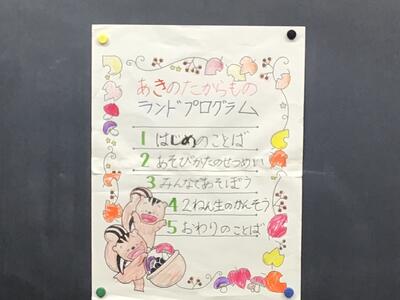 あきのたからもの
ランドプログラム
1 はじめのことば
2 あそびかたのせつめい
3 みんなであそぼう
4 2ねん生のかんそう
5 おわりのことば